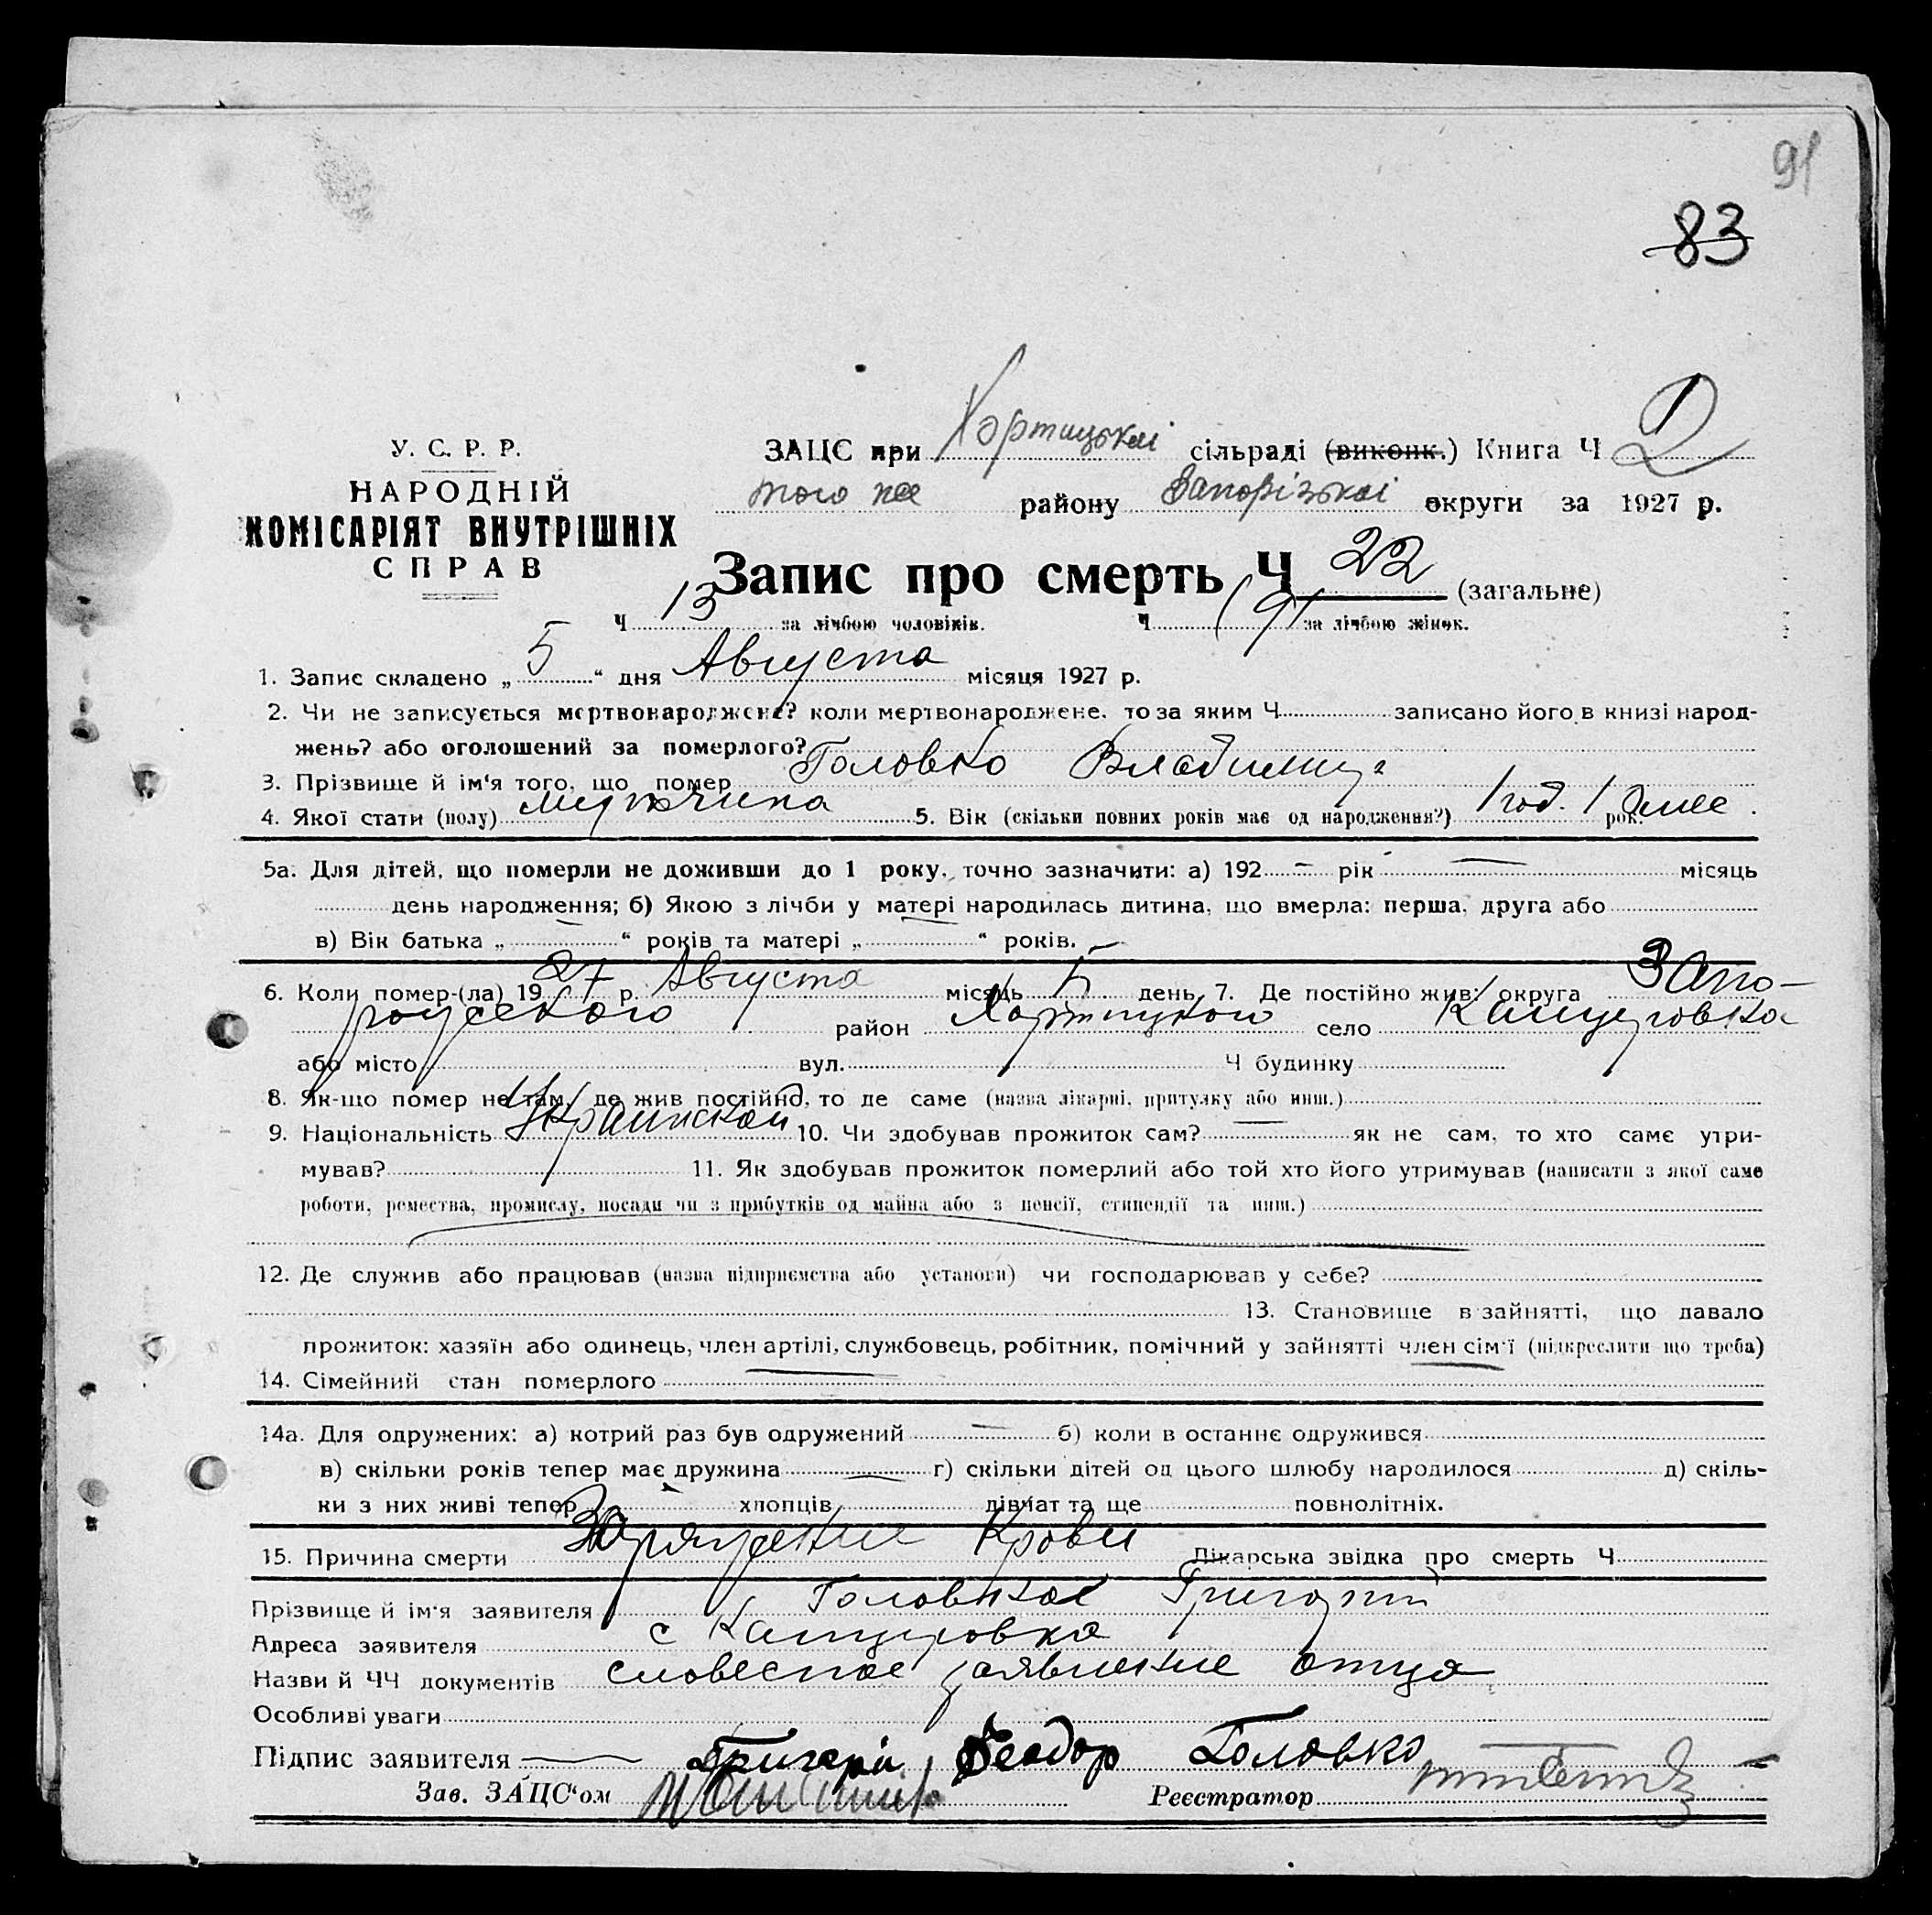 91
83
У. С. Р. Р.
НАРОДНІЙ
КОМІСАРІЯТ ВНУТРІШНІХ
СПРАВ
ЗАЦС при Хортицькаі сільраді (виконк.) Книга Ч D
того же району Запорізькаі округи за 1927 р.
Запис про смерть Ч 22 (загальне)
Ч 13 за лічбою чоловіків. Ч (9) за лічбою жінок.
1. Запис складено „ 5 “ дня Августа місяця 1927 р.
2. Чи не записується мертвонароджене? коли мертвонароджене, то за яким Ч записано його в книзі народ-
жень? або оголошений за померлого?
3. Прізвище й ім‘я того, що помер Головко Владимир
4. Якої стати (полу) мужчина 5. Вік (скільки повних років має од народження?) 1 год. 1 рок.
5а. Для дітей, що померли не доживши до 1 року, точно зазначити: а) 192 – рік — місяць
день народження; б) Якою з лічби у матері народилась дитина, що вмерла: перша, друга або
в) Вік батька „ “ років та матері „ “ років. —
6. Коли помер-(ла) 1927 р. Августа місяць 5 день 7. Де постійно жив: округа Запо-
рожского район Хортицкого село Канцеровка
або місто вул. Ч будинку
8. Як-що помер не там, де жив постійно, то де саме (назва лікарні, притулку або инш.)
9. Національність Украинской 10. Чи здобував прожиток сам? — як не сам, то хто саме утри-
мував? 11. Як здобував прожиток померлий або той хто його утримував (написати з якої саме
роботи, ремества, промислу, посади чи з прибутків од майна або з пенсії, стипендії та инш.)
12. Де служив або працював (назва підприємства або установи) чи господарював у себе?
13. Становище в зайнятті, що давало
прожиток: хазяїн або одинець, член артілі, службовець, робітник, помічний у зайнятті член сім‘ї (підкреслити що треба)
14. Сімейний стан померлого —
14а. Для одружених: а) котрий раз був одружений — б) коли в останнє одружився
в) скільки років тепер має дружина — г) скільки дітей од цього шлюбу народилося д) скіль-
ки з них живі тепер хлопців дівчат та ще повнолітніх.
15. Причина смерти Заражение Крови Лікарська звідка про смерть Ч
Прізвище й ім‘я заявителя Головко Григорий
Адреса заявителя с Канцеровка
Назви й ЧЧ документів словесное заявление отца
Особливі уваги
Підпис заявителя — Григорій Феодор Головко
Зав. ЗАЦС‘ом Реєстратор